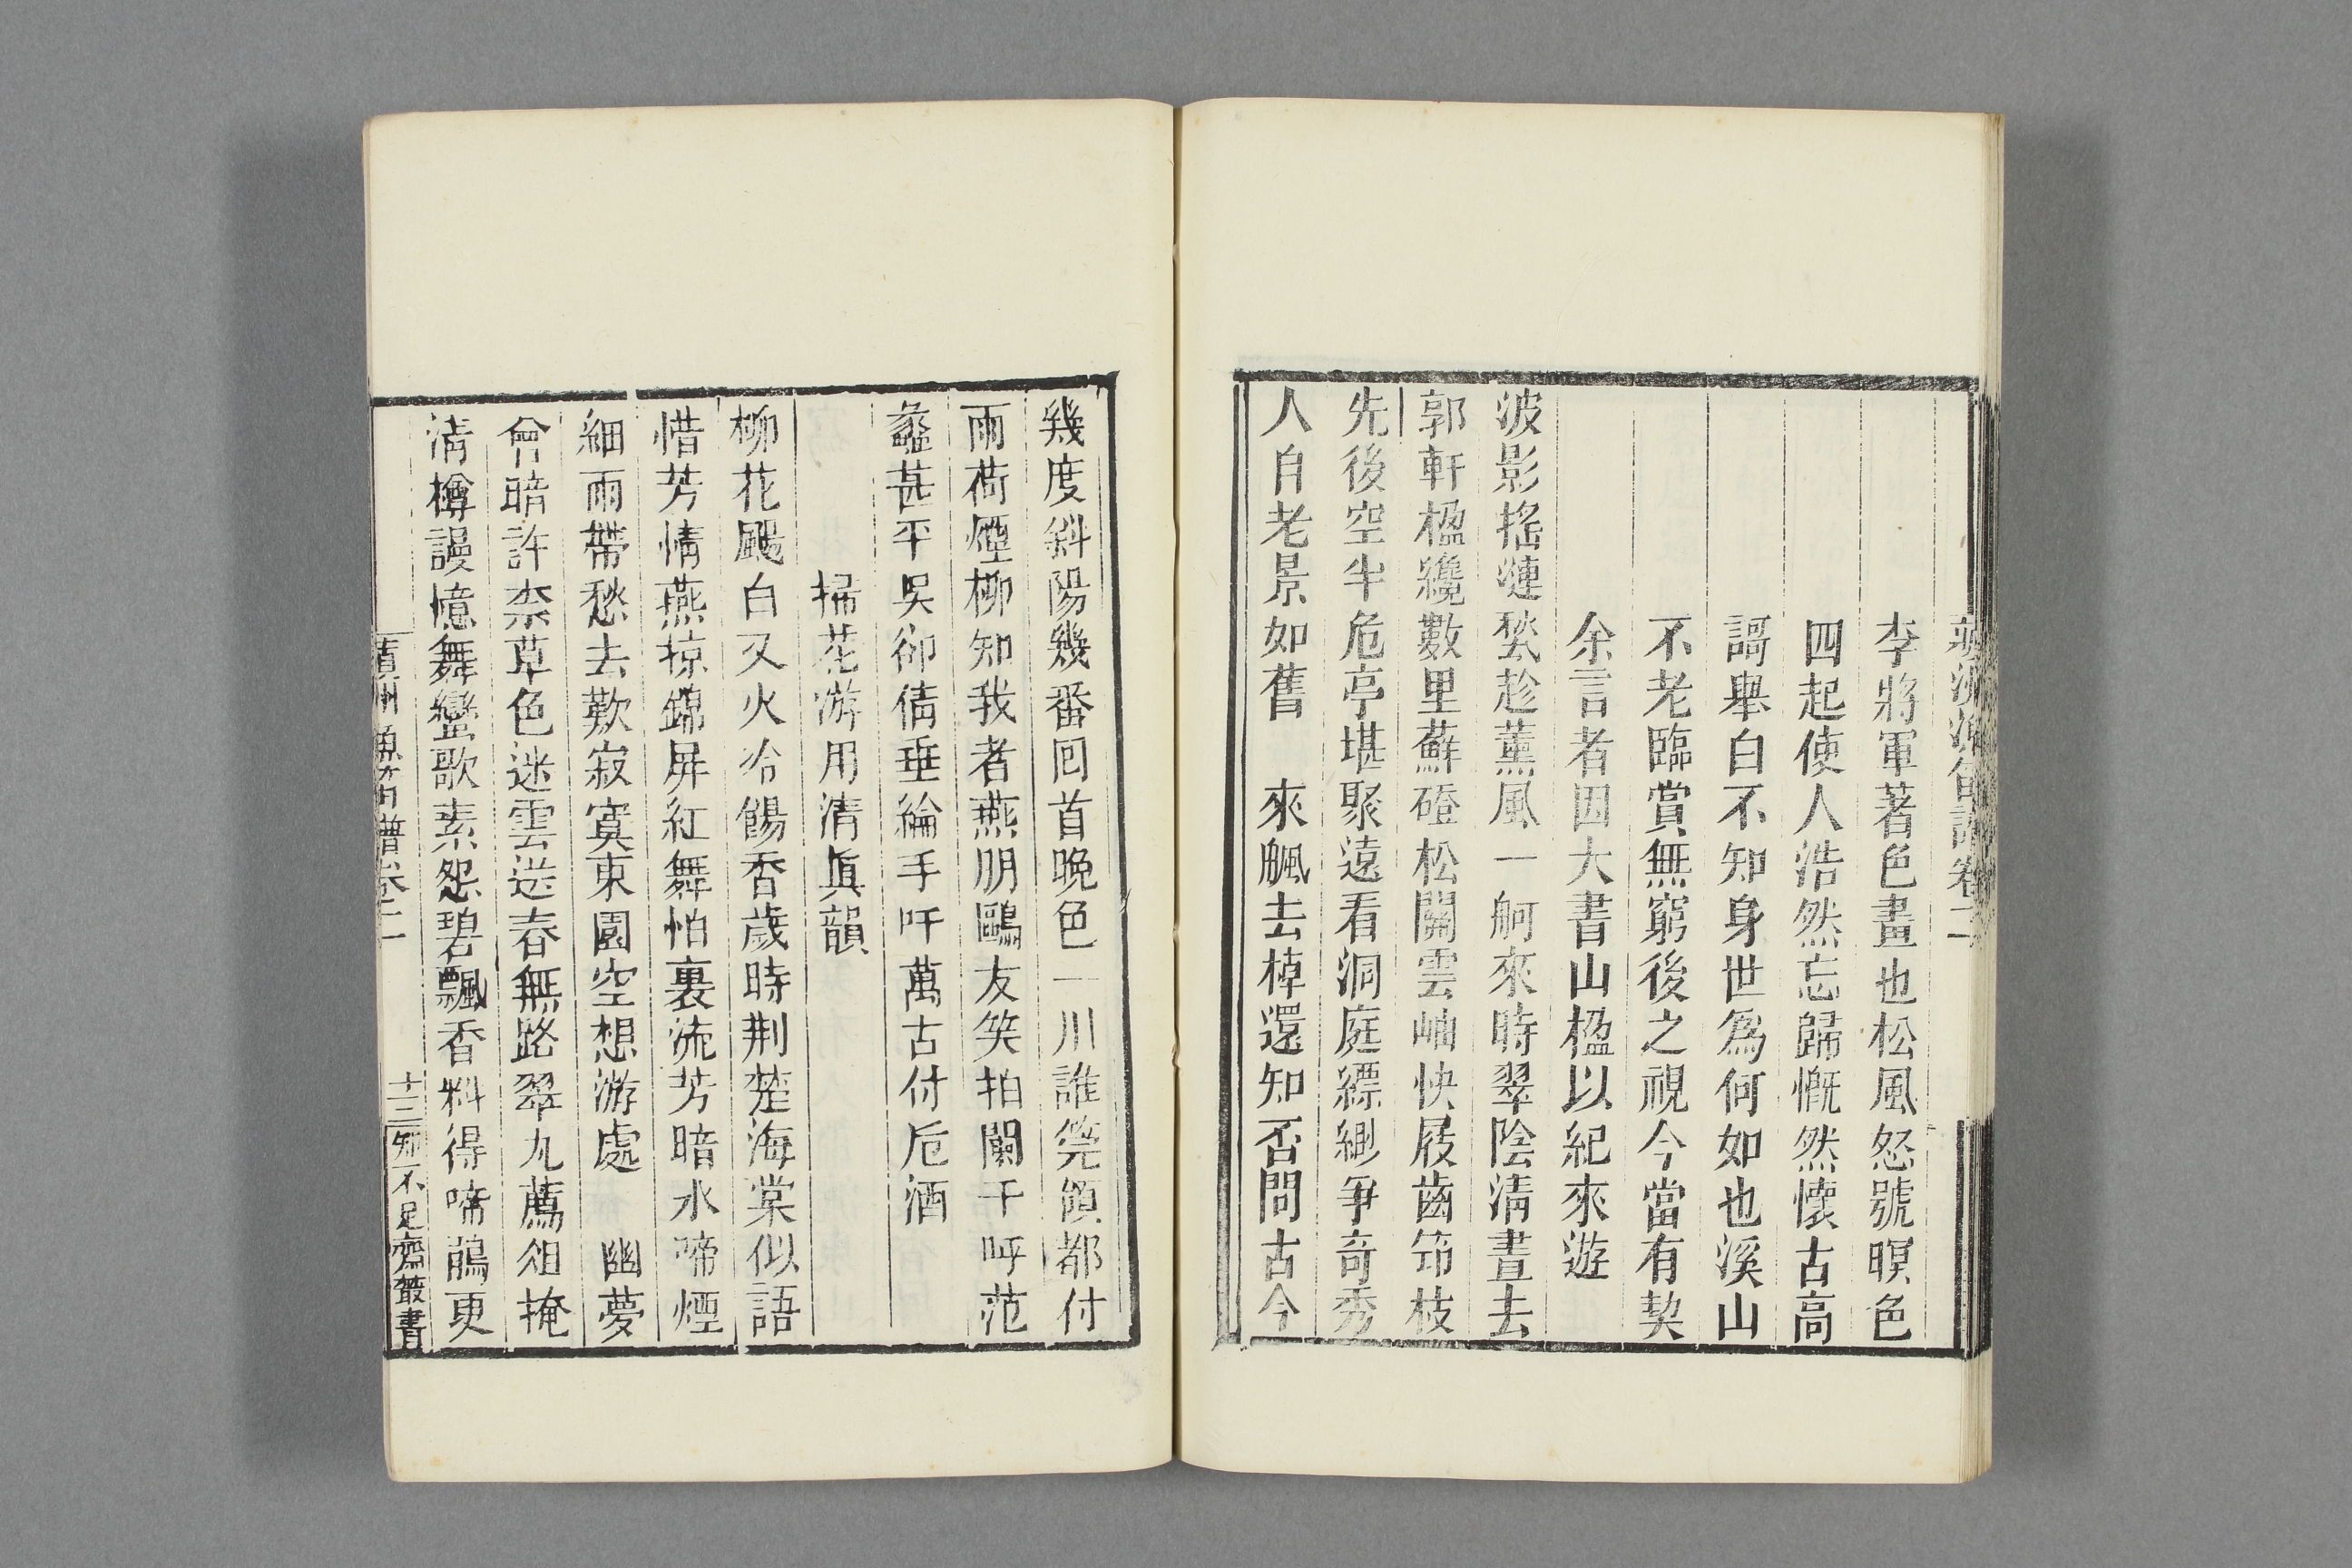 蘋洲漁笛譜卷二
李將軍著色畫也松風怒號暝色
四起使人浩然忘歸慨然懷古高
謌舉白不知身世爲何如也溪山
不老臨賞無窮後之視今當有契
余言者因大書山楹以紀來遊
波影搖漣甃趁薰風一舸來時翠陰清晝去
郭軒楹纔數里蘚磴松關雲岫快屐齒筇枝
先後空半危亭堪聚遠看洞庭縹緲爭奇秀
人自老景如舊　來颿去棹還知否問古今
幾度斜陽幾番回首晚色一川誰筦領都付
雨荷煙柳知我者燕朋鷗友笑拍闌干呼范
蠡甚平吳卻倩垂綸手吁萬古付卮酒
掃花游用清眞韻
柳花颺白又火冷餳香歲時荆楚海棠似語
惜芳情燕掠錦屛紅舞怕裏流芳暗水啼煙
細雨帶愁去歎寂寞東園空想游處　幽夢
曾暗許柰草色迷雲送春無路翠丸薦俎掩
淸樽謾憶舞蠻歌素怨碧飄香料得啼鵑更
蘋洲漁笛譜卷二
十三
知不足齋叢書